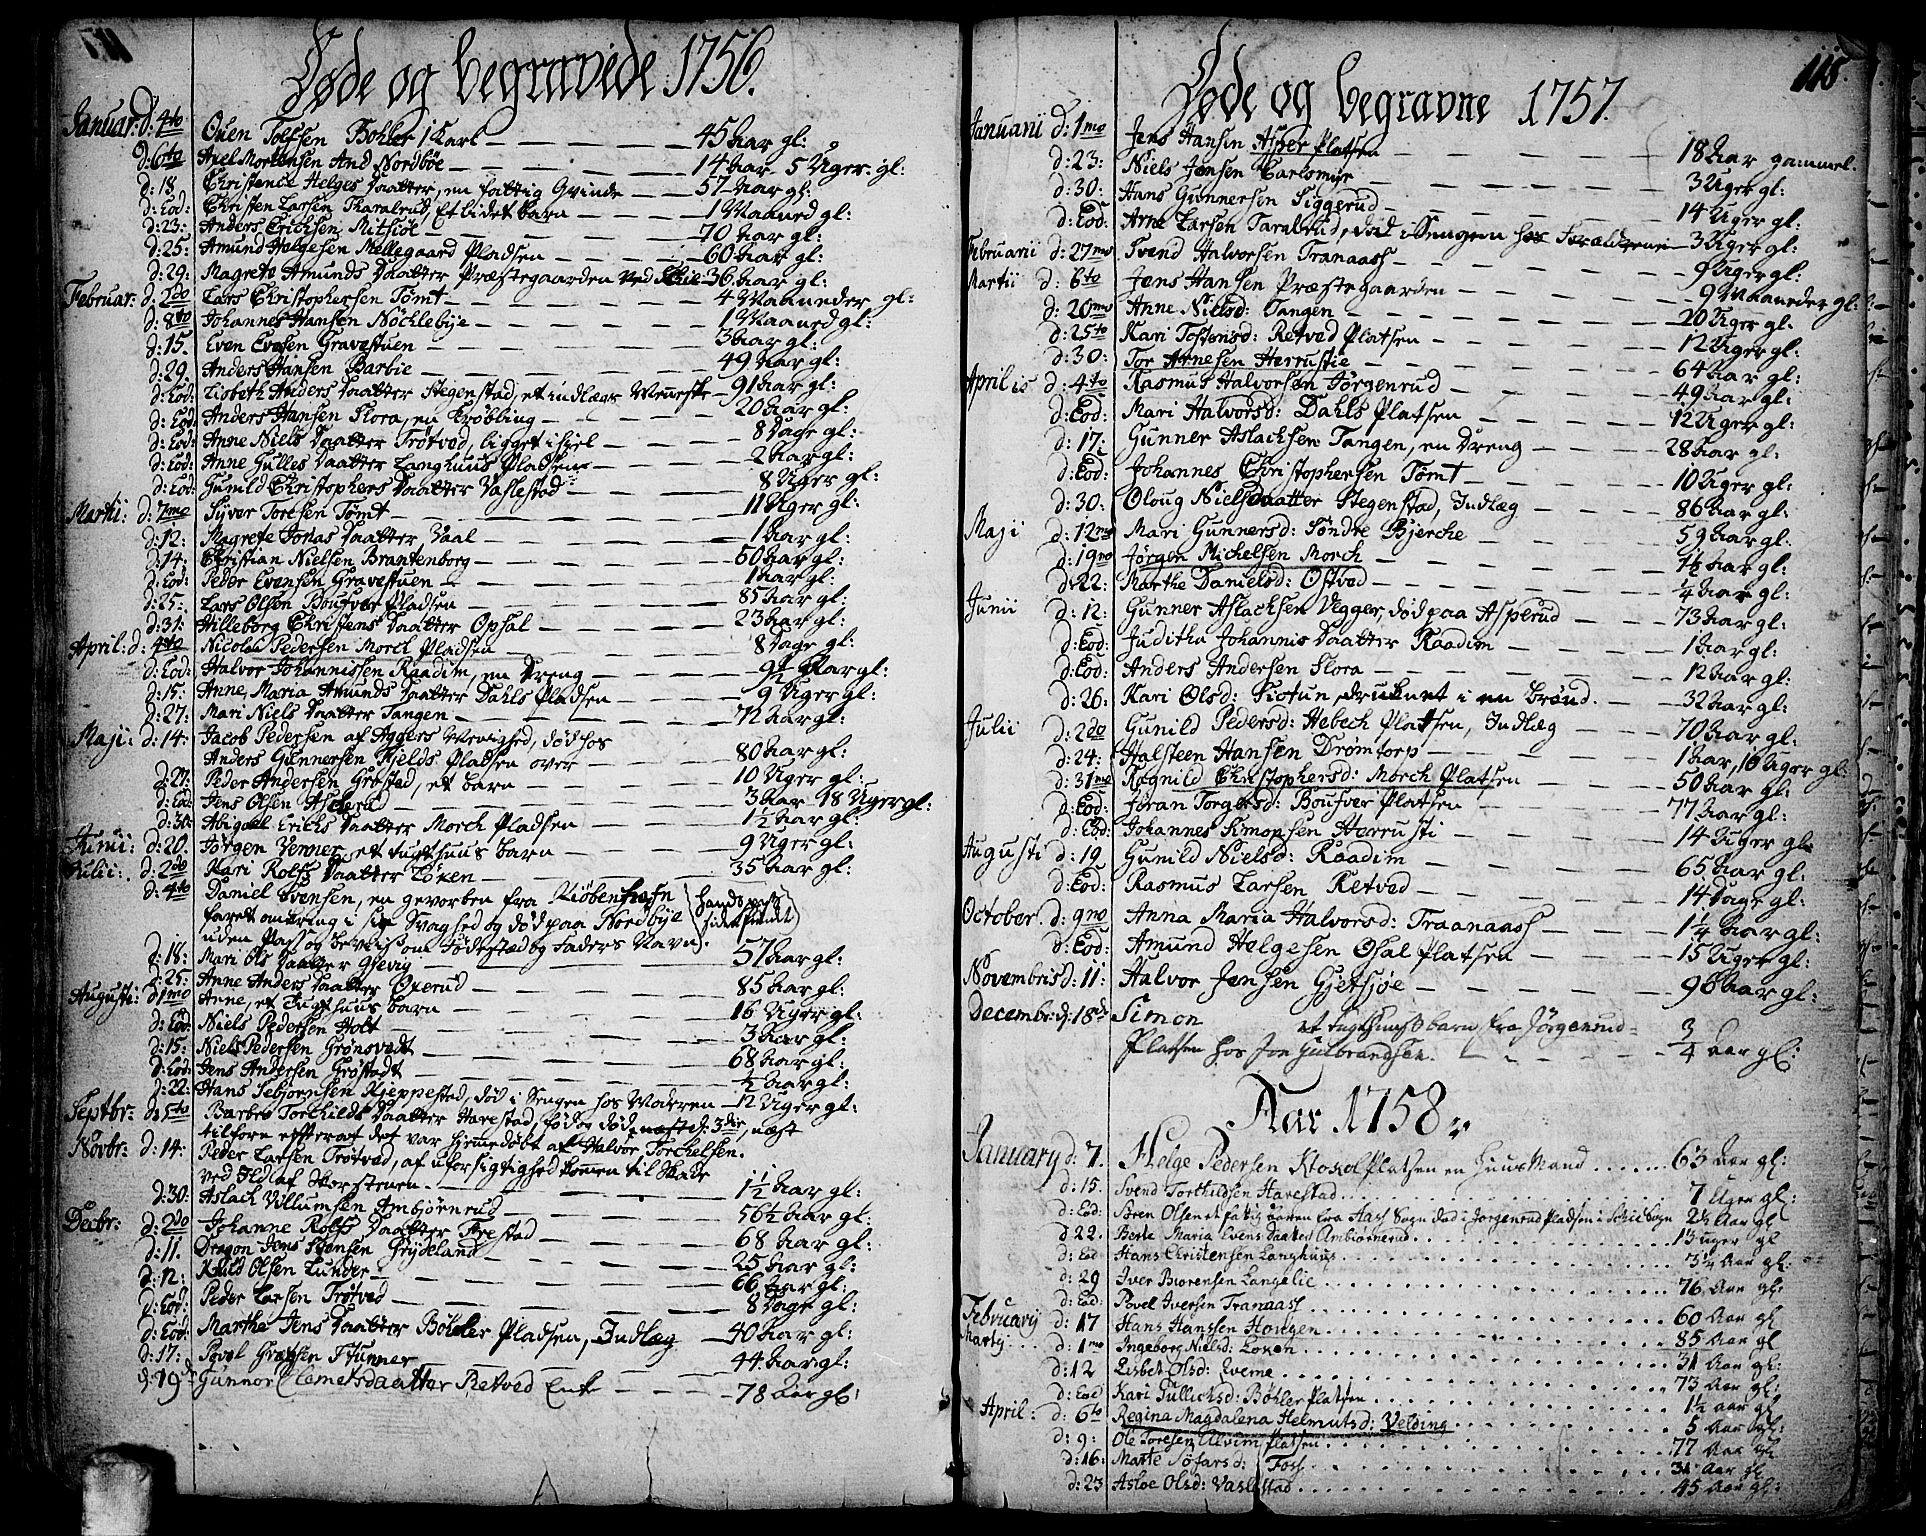 Døde og begravede 1756.
Januar: d: 4to Ouen Tolfsen Bohler 1 Karl 45 Aar gl:
d: 6to Axel Mortensen And Nordbøe 14 Aar 5 Uger gl:
d: 18 Christence Helges Daatter, en fattig Qvinde 57 Aar gl:
d: Eod: Christen Larsen Tharalrud, et lidet barn 1 Maaned gl:
d: 23: Anders Erichsen Mitsiøe 70 Aar gl:
d: 25: Amund Helgesen Mellegaard Pladsen 60 Aar gl:
d: 29: Magrete Amunds Daatter Præstegaarden ved Schie 36 Aar gl:
Februar: d: 2do Lars Christophersen Tømt 4 Maaneder gl:
d: 8to Johannes Hansen Nøchlebye 1 Maaned gl:
d: 15. Even Evesen Gravestuen 3 Aar gl:
d: 29. Anders Hansen Barbie 49 Aar gl:
d: Eod: Lisbeth Anders Daatter Stegenstad, et indlægs Meneske 91 Aar gl:
d: Eod: Anders Hansen Flora, en Krøbling 20 Aar gl:
d: Eod: Anne Niels Daatter Trøtved, ligget ihiel 8 Dage gl:
d: Eod: Anne Gulles Daatter Langhuus Pladsen 2 Aar gl:
d: Eod: Gunild Christophers Daatter Vaslestad 8 Uger gl:
Martii: d: 7mo Syver Toresen Tømt 11 Uger gl:
d: 12: Magrete Jonas Daatter Vaal 1 Aar gl:
d: 14: Christian Nielsen Brantenborg 50 Aar gl:
d: Eod: Peder Evensen Gravestuen 1 Aar gl:
d: 25: Lars Olsen Bousver Pladsen 85 Aar gl:
d: 31: Hilleborg Christens Daatter Opsal 23 Aar gl:
April: d: 4to Nicolai Pedersen Morch Pladsen 8 Dage gl:
d: Eod: Halvor Johannissen Raadim, en Dreng 9½ Aar gl:
d: 15: Anne Maria Amunds Daatter Dahls Pladsen 9 Uger gl:
d: 27: Mari Niels Daatter Tangen 72 Aar gl:
Maji: d: 14: Jacob Pedersen af Aggers Menighed, død hos
Anders Gunnersen Hields Pladsen over 80 Aar gl:
d: 27: Peder Andersen Grøstad, et barn 10 Uger gl:
d: Eod: Jens Olsen Asperud 3 Aar 18 Uger gl:
d: 30: Abigael Erichs Daatter Morch Pladsen 1½ Aar gl:
Junii: d: 20: Jørgen Venner, et tugthuus barn 9 Uger gl:
Julii: d: 2do Kari Rolfs Daatter Løken 35 Aar gl:
d: 4to Daniel Evensen, en gevorben fra Kiøbenhafn (hands pass
faret omkring i sin Svaghed og død paa Nordbye sidst fundet)
uden Pass og beviis om Fødested og Faders Navn.
d: 18: Mari Ols Daatter Gjevig 57 Aar gl:
d: 25: Anne Anders Daatter Oxerud 85 Aar gl:
Augusti: d 1mo Anne, et Tugthuus barn 16 Uger gl:
d: Eod: Niels Pedersen Holt 3 Aar gl:
d: 15: Niels Pedersen Grønsvedt 68 Aar gl:
d: Eod: Jens Andersen Grøstedt ½ Aar gl:
d: 22: Hans Sebjørnsen Kjeppestad, død i Sengen hos Moderen 12 Uger gl:
Septbr: d: 5to Barbro Torchilds Daatter Harestad, fødde død, næst d: 3die, næst
tilforn efterat det var hjemedøbt af Halvor Torchelsen.
Novbr: d: 14: Peder Larsen Trøtved, af uforsigtighed kommen til Skade
ved Ild af Skorstenen. 1½ Aar gl:
d: 30: Aslach Villumsen Ambjørnrud 56½ Aar gl:
Decbr: d: 2do Johanne Rolfs Daatter Frestad 68 Aar gl:
d: 11. Dragon Jens Steensen Grydeland 25 Aar gl:
d: 12: Knud Olsen Lunder 66 Aar gl:
d: Eod: Peder Larsen Trøtved 8 Dage gl:
d: Eod: Marthe Jens Daatter Bøhler Pladsen, Indlæg 40 Aar gl:
d: 17: Povel Græsen Stunner 44 Aar gl:
d: 19de Gunnor Clemetsdaatter Retved Enke 78 Aar gl:
115
Døde og begravne 1757.
Januarii d: 1mo Jens Hansen Asper Platsen 18 Aar gammel.
d: 23: Niels Jensen Carlsmyr 3 Uger gl:
d: 30: Hans Gunnersen Siggerud 14 Uger gl:
d: Eod: Arne Larsen Taralrud, død i Sengen hos Forældrene 3 Uger gl:
Februarii d: 27mo Svend Halvorsen Tranaass 9 Uger gl:
Martii d: 6to Jens Hansen Præstegaarden 9 Maaneder gl:
d: 20mo Anne Nielsd: Tangen 20 Uger gl.
d: 25to Kari Tostensd: Retved Platsen 12 Uger gl:
d: 30: Tor Arnesen Herrustie 64 Aar gl:
Aprilis d: 4to Rasmus Halvorsen Jørgenrud 49 Aar gl:
d: Eod: Mari Halvorsd: Dahls Platsen 12 Uger gl:
d: 17: Gunner Aslachsen Tangen, en Dreng 28 Aar gl:
d: Eod: Johannes Christophersen Tømt 10 Uger gl:
d: 30: Oloug Nielsdaatter Stegenstad, Indlæg 86 Aar gl:
Maji d: 12mo Mari Gunnersd: Søndre Bjerche 59 Aar gl:
d: 19no Jørgen Michelsen Morch 1½ Aar gl:
d: 22: Marthe Danielsd: Ostved ¼ Aar gl:
Junii d: 12: Gunner Aslachsen Vegger, død paa Asperud 73 Aar gl:
d: Eod: Juditha Johannis Daatter Raadim 1 Aar gl:
d: Eod: Anders Andersen Flora 12 Aar gl:
d: 26: Kari Olsd: Fiotun, druknet i en brønd. 32 Aar gl:
Julii d: 2do Gunild Pedersd: Hebech Platsen, Indlæg 70 Aar gl:
d: 24: Halsteen Hansen Drømtorp 1 Aar, 16 Uger gl:
d: 31mo Ragnild Christophersd: Morch Platsen 50 Aar gl:
d: Eod: Jøran Torgersd: Bousver Platsen 77 Aar gl:
d: Eod: Johannes Simonsen Herrusti 14 Uger gl.
Augusti d: 19 Gunild Nielsd: Raadim 65 Aar gl:
d: Eod: Rasmus Larsen Retved 14 Dage gl:
October. d: 9no Anna Maria Halvorsd: Traanaass 1¼ Aar gl:
d: Eod: Amund Helgesen Osal Platsen 15 Uger gl:
Novembris d: 11: Halvor Jensen Gjetsjøe 96 Aar gl:
Decembr: d: 18de Simon et tugthuus barn fra Jørgenrud
Platsen hos Jon Gulbrandsen. ¾ Aar gl:
Aar 1758.
January d: 7. Helge Pedersen Krokol Platsen en Huus Mand 63 Aar gl:
d: 15. Svend Torkildsen Harestad 7 Uger gl:
d: Eod: Søren Olsen et fattig barn fra Aass Sogn død i Jørgenrud Pladsen i Schie Sogn 2½ Aar gl
d 22. Berte Maria Evens Daatter Ambiørnerud 13 uger gl
d: Eod Hans Christensen Langhuus 3¼ Aar gl.
d: 29 Iver Biørensen Langelie 76 Aar gl:
d: Eod: Povel Iversen Tranaass 60 Aar gl
February d: 17 Hans Hanssen Hougen 85 Aar gl
Marty d: 1mo Ingeborg Nielsd: Løken 31 Aar gl:
d: 12 Lisbet Olsd: Everne 73 Aar gl:
d: Eod Kari Gullicksd: Bøhler Platsen 1½ aar gl
April: d: 6to Regina Magdalena Helmutsd: Velding 5 Aar gl:
d: 9: Ole Toresen Alvim Platsen 77 Aar gl
d: 16: Marte Søfarsd: Foss 31 Aar gl
d: 23 Asloe Olsd: Vaslestad 45 Aar gl: